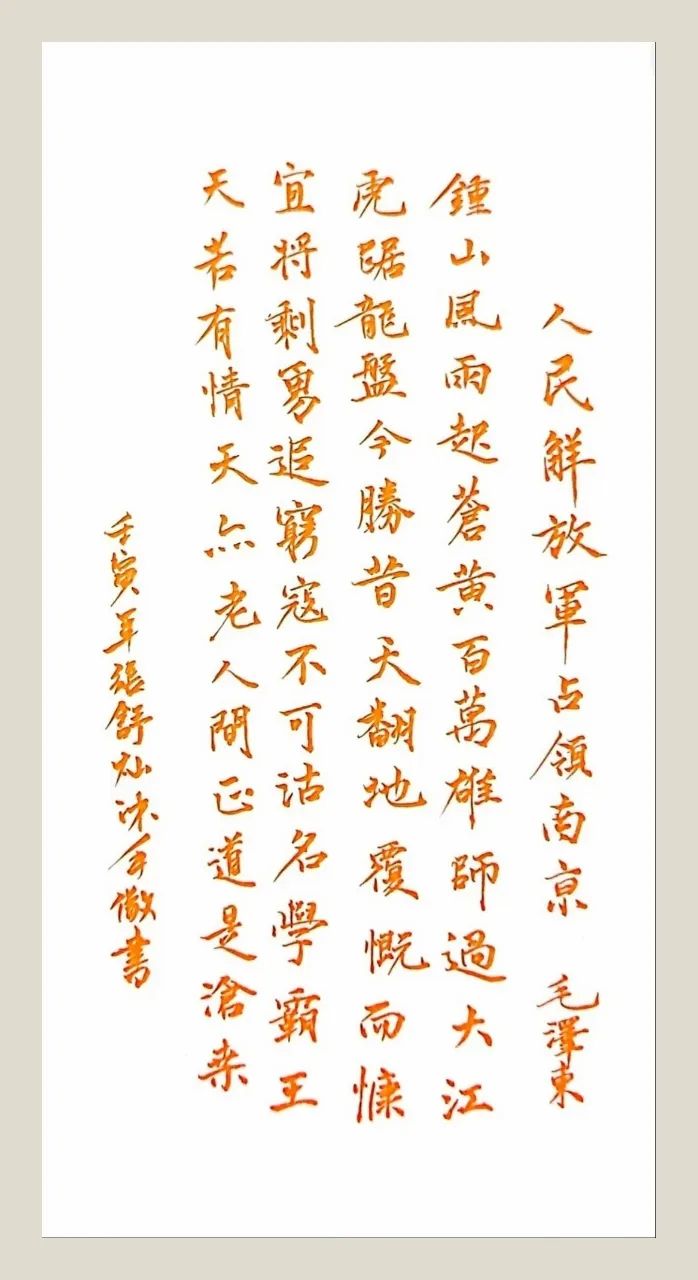 人民解放軍占領南京 毛澤東
鍾山風雨起蒼黃百萬雄師過大江
虎踞龍盤今勝昔天翻地覆慨而慷
宜將剩勇追窮寇不可沽名學霸王
天若有情天亦老人間正道是滄桑
壬寅年張舒灿沐手儆書